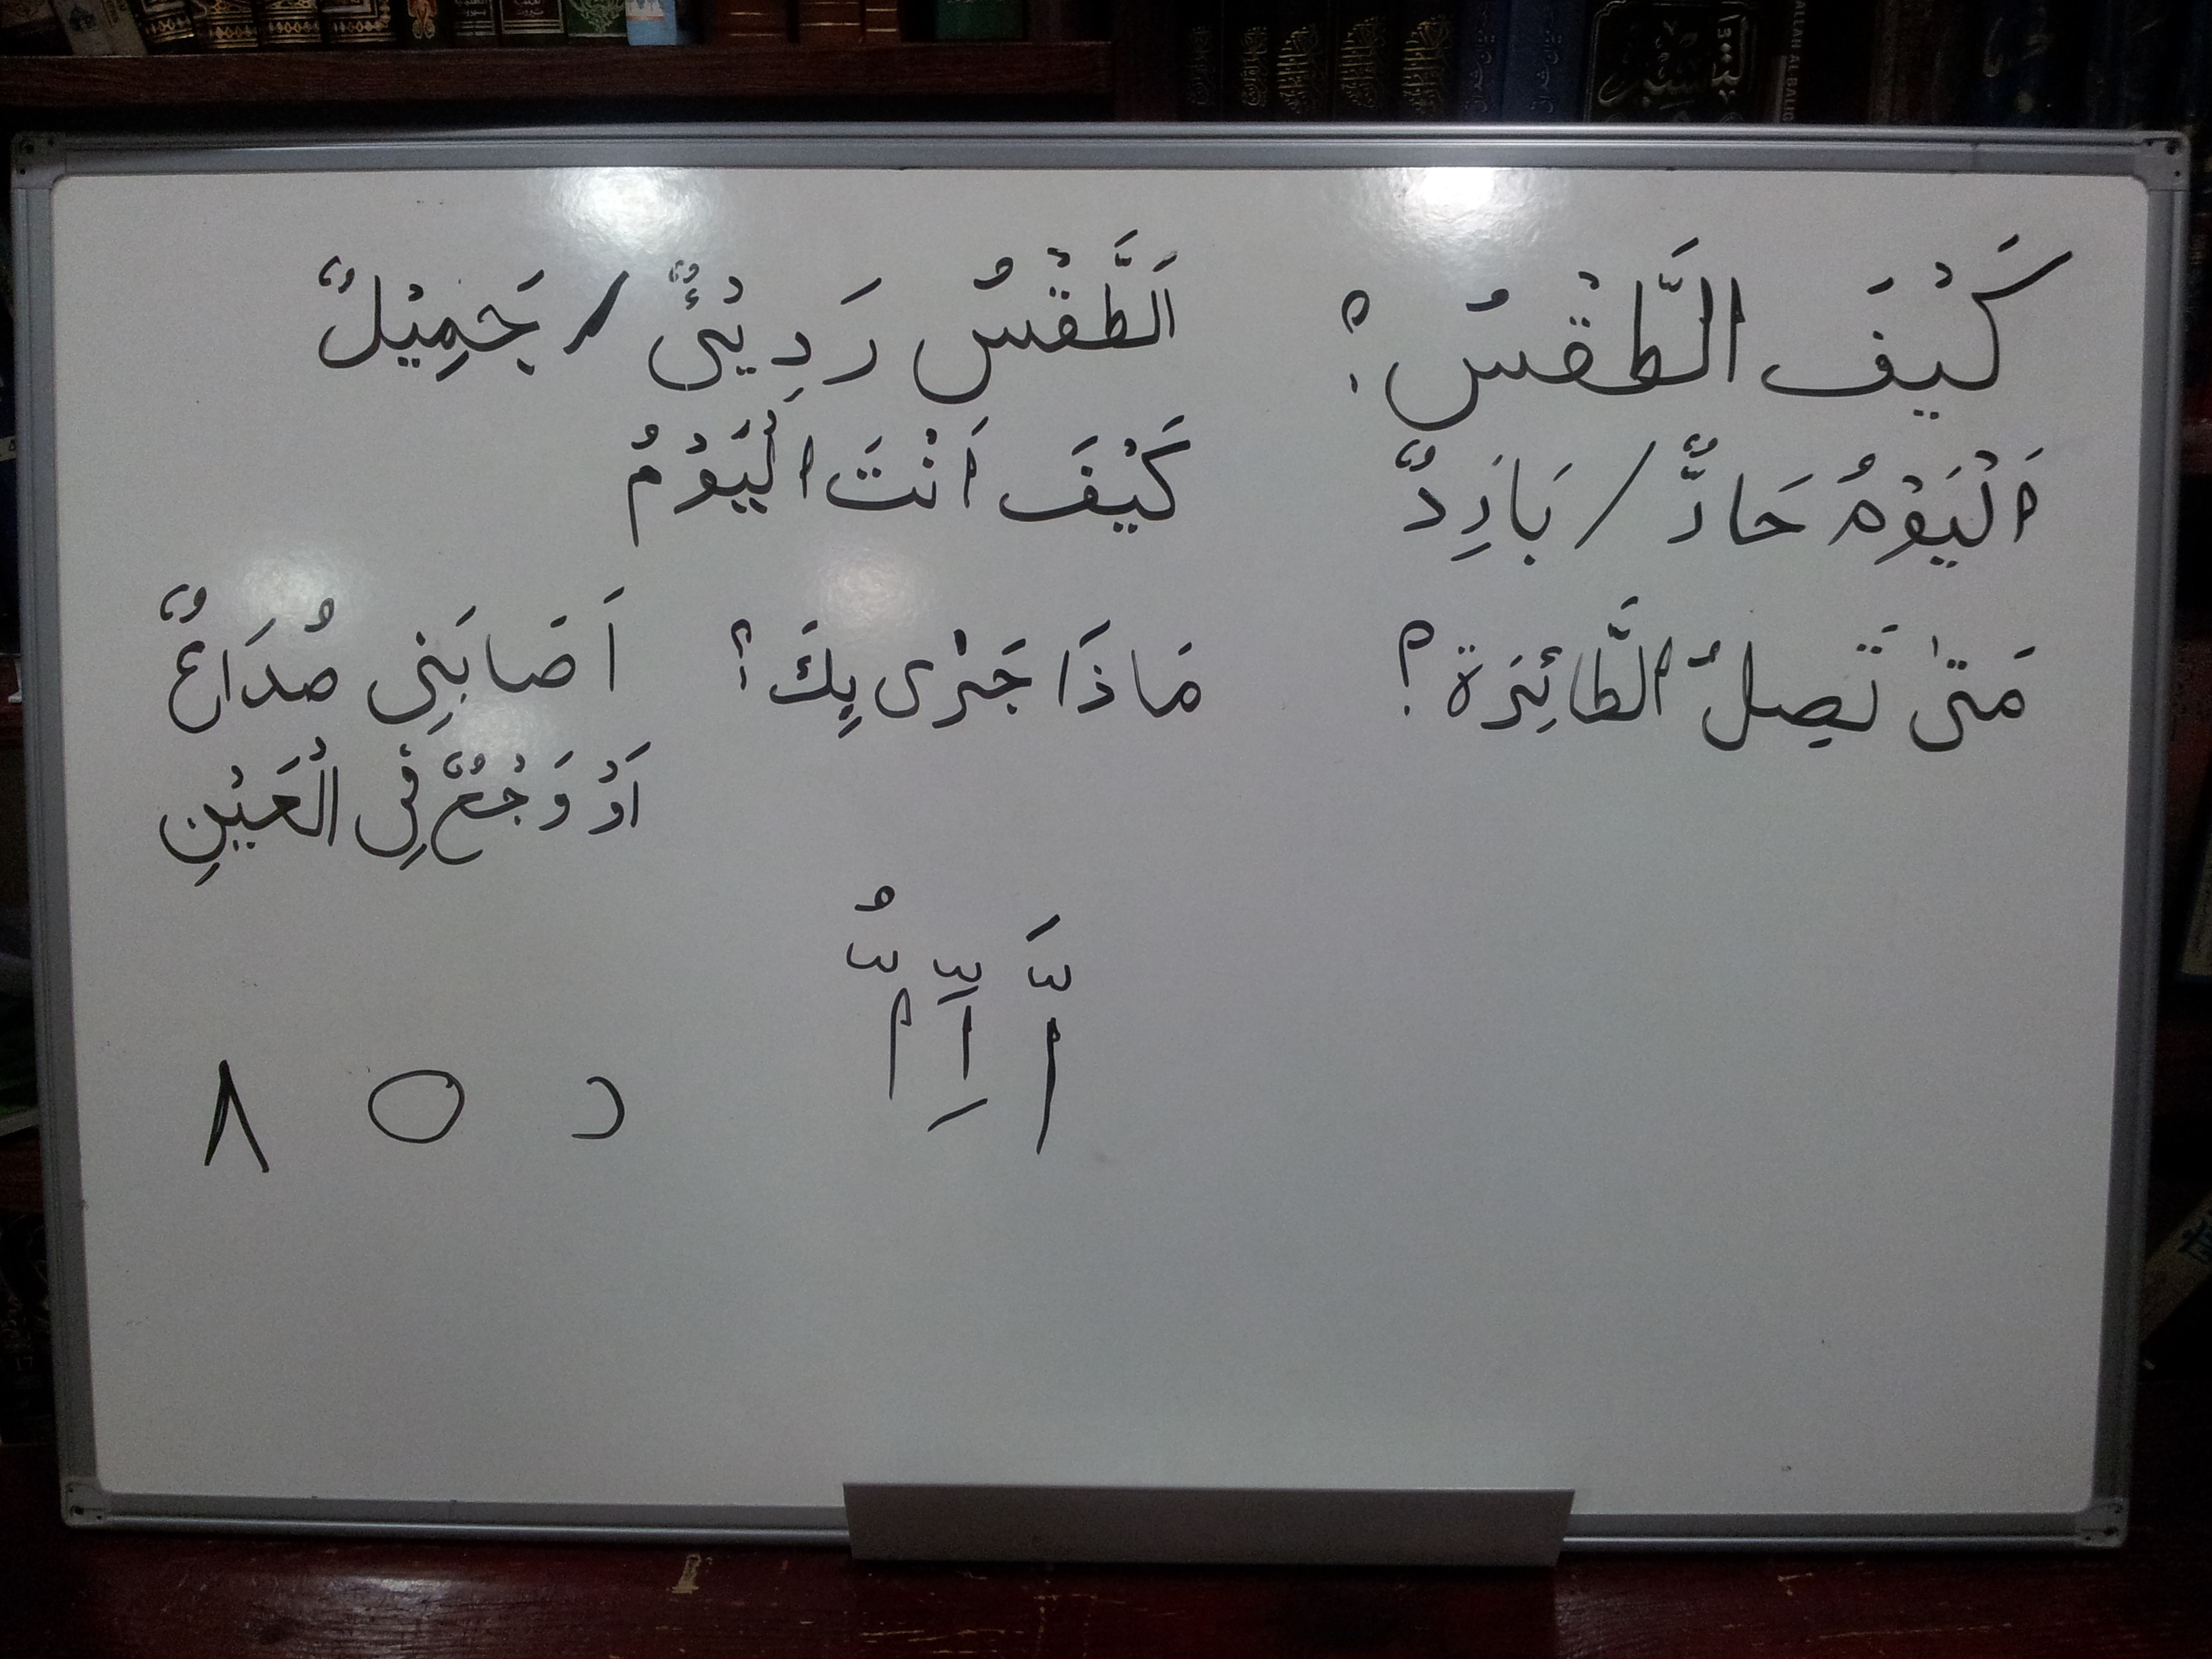 كَيْفَ الطَّقْسُ؟
اَلطَّقْسُ رَدِيْئٌ / جَمِيْلٌ
اَلْيَوْمُ حَادٌّ / بَارِدٌ
كَيْفَ اَنْتَ الْيَوْمُ
مَتىٰ تَصِلُ الطَّائِرَة؟
مَاذَا جَرْى بِكَ؟
اَصَابَنِي صُدَاعٌ
اَوْ وَجْعٌ فِي الْعَيْنِ
اَّ اِّ اُّ